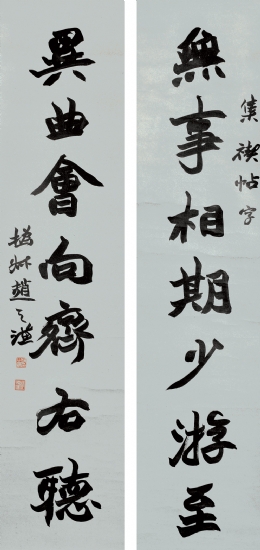 無事相期少游至
集禊帖字
異曲會向齊右聽
撝叔趙之謙